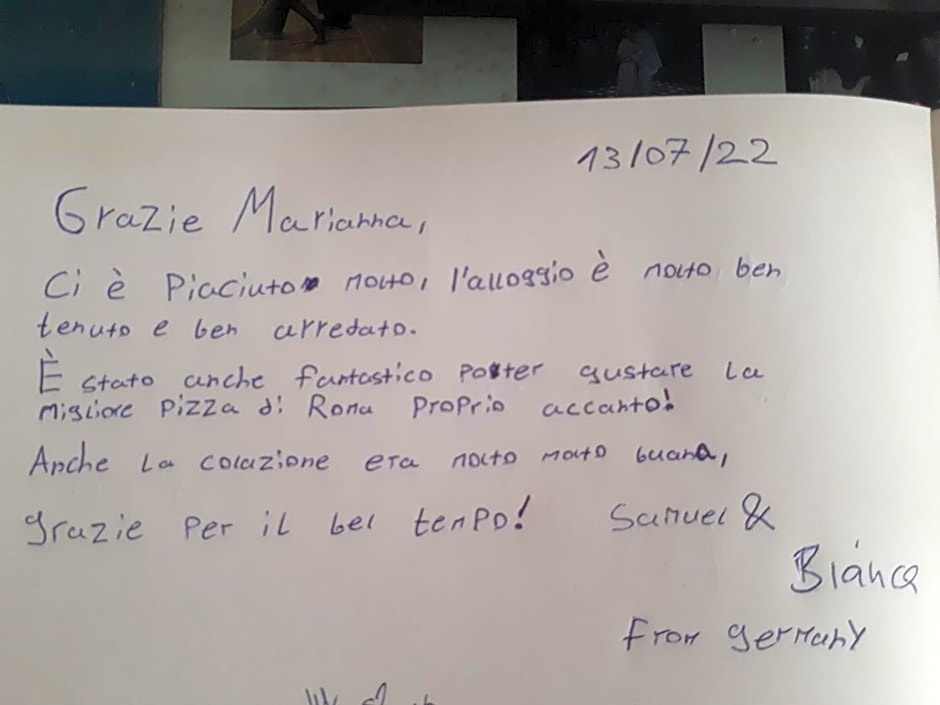 13/07/22
Grazie Marianna,
Ci è Piaciuto molto, l'alloggio è molto ben
tenuto e ben arredato.
È stato anche fantastico poter gustare la
migliore pizza di Roma proprio accanto!
Anche la colazione era molto molto buana,
grazie per il bel tempo! Samuel &
Bianca
From germany